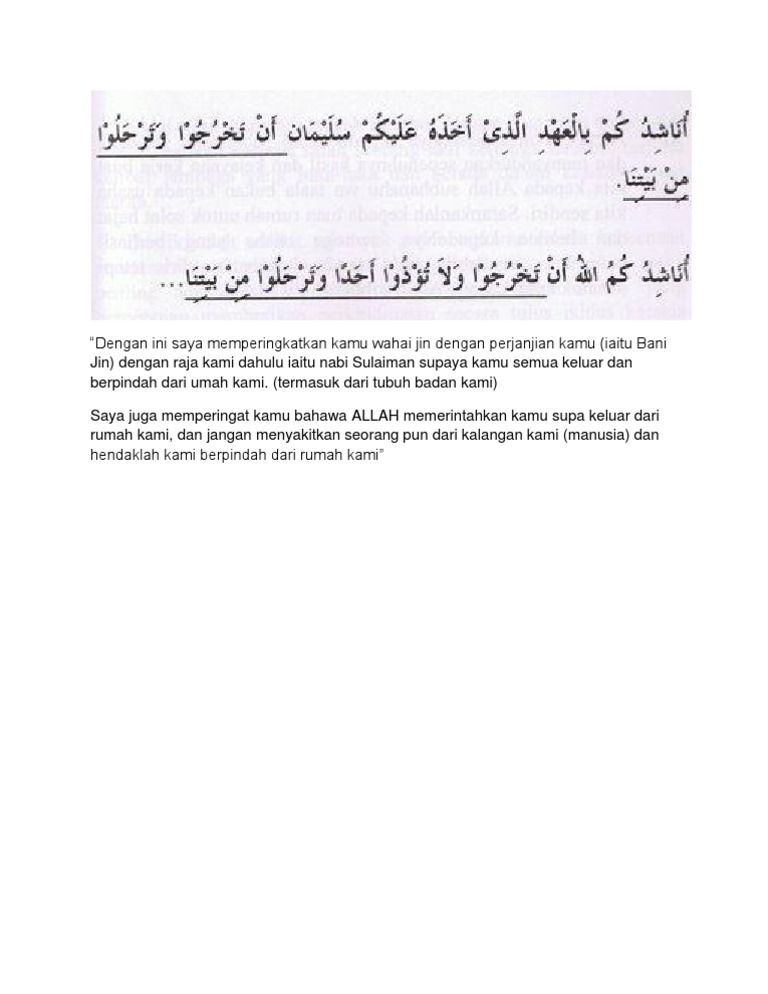 أُنَاشِدُ كُمْ بِالْعَهْدِ الَّذِىْ أَخَذَهُ عَلَيْكُمْ سُلَيْمَان أَنْ تَخْرُجُوْا وَتَرْحَلُوْا
مِنْ بَيْتِنَا.
أُنَاشِدُ كُمُ اللهُ أَنْ تَخْرُجُوْا وَلاَ تُؤْذُوْا أَحَدًا وَتَرْحَلُوْا مِنْ بَيْتِنَا...
“Dengan ini saya memperingkatkan kamu wahai jin dengan perjanjian kamu (iaitu Bani
Jin) dengan raja kami dahulu iaitu nabi Sulaiman supaya kamu semua keluar dan
berpindah dari umah kami. (termasuk dari tubuh badan kami)
Saya juga memperingat kamu bahawa ALLAH memerintahkan kamu supa keluar dari
rumah kami, dan jangan menyakitkan seorang pun dari kalangan kami (manusia) dan
hendaklah kami berpindah dari rumah kami”